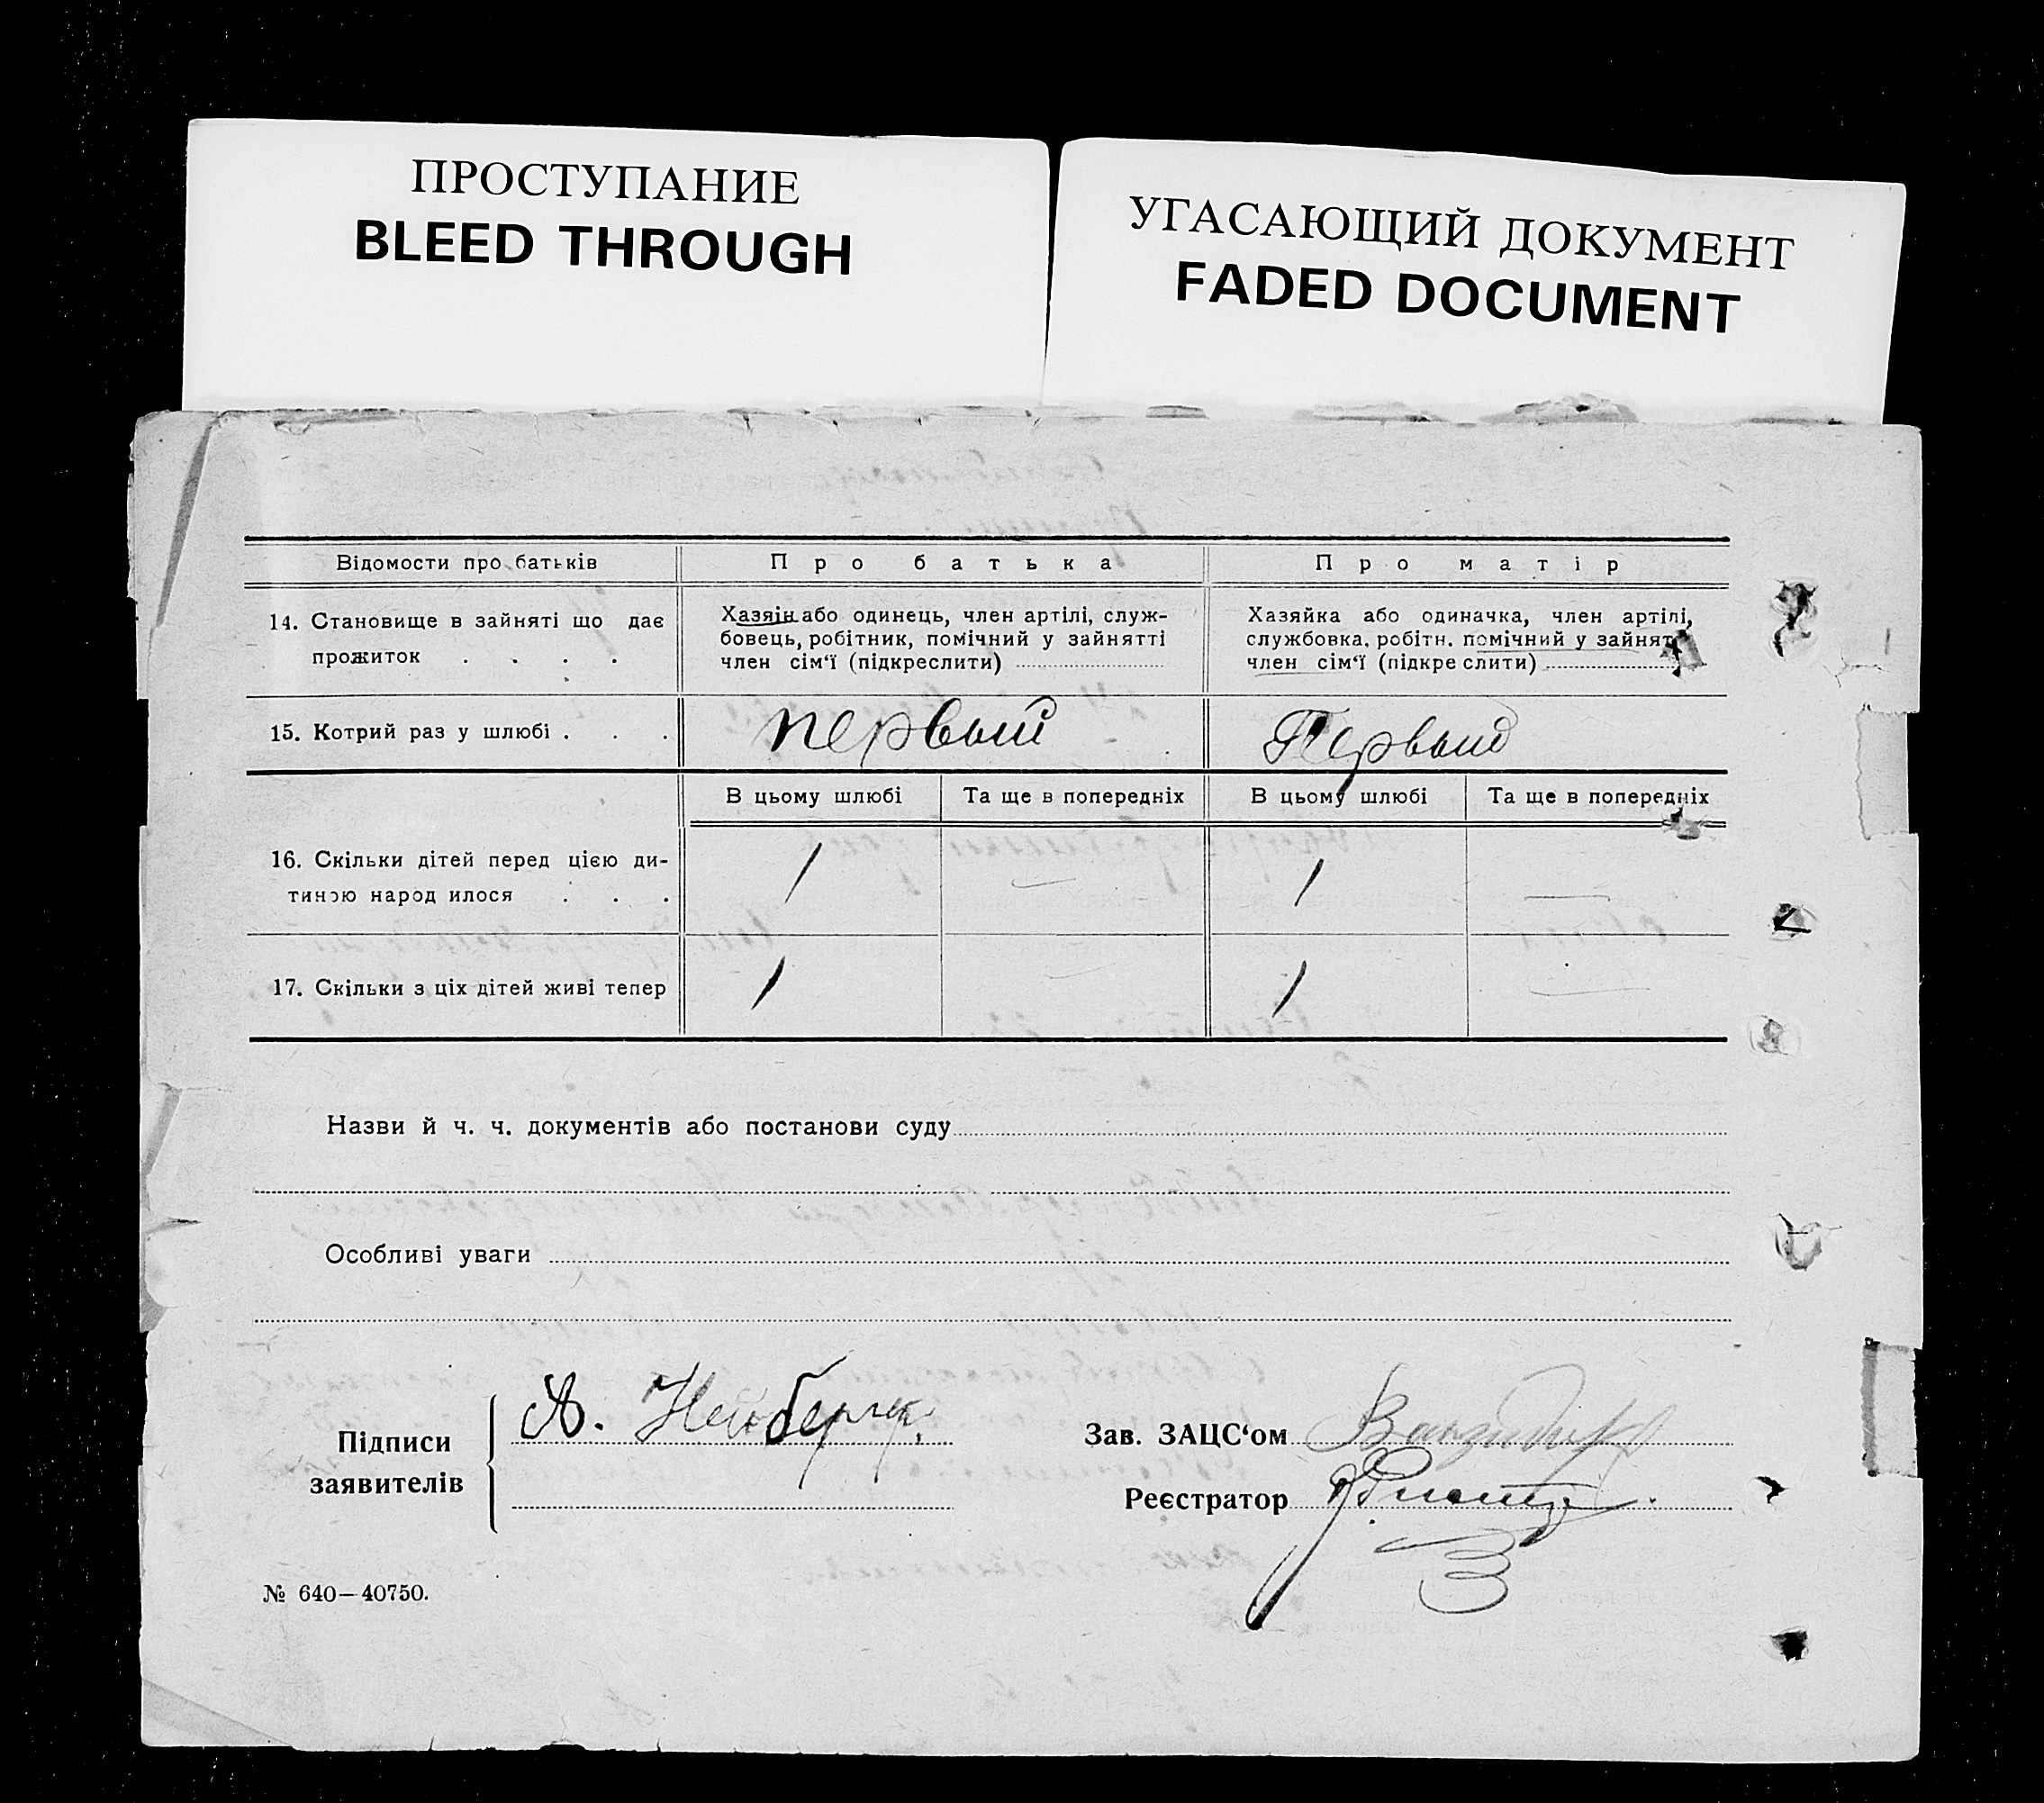 ПРОСТУПАНИЕ
BLEED THROUGH
УГАСАЮЩИЙ ДОКУМЕНТ
FADED DOCUMENT
Відомости про батьків
Про батька
Про матір
14. Становище в зайняті що дає
прожиток . . . .
Хазяін або одинець, член артілі, служ-
бовець, робітник, помічний у зайнятті
член сім‘ї (підкреслити)
Хазяйка або одиначка, член артілі,
службовка, робітн. помічний у зайнят
член сім‘ї (підкре слити)
15. Котрий раз у шлюбі . . .
первый
Первый
В цьому шлюбі
Та ще в попередніх
В цьому шлюбі
Та ще в попередніх
16. Скільки дітей перед цією ди-
тиною народ илося . . .
1
—
1
—
17. Скільки з ціх дітей живі тепер
1
—
1
—
Назви й ч. ч. документів або постанови суду
Особливі уваги
Підписи
заявителів
А.
Зав. ЗАЦС‘ом
Реєстратор
№ 640—40750.